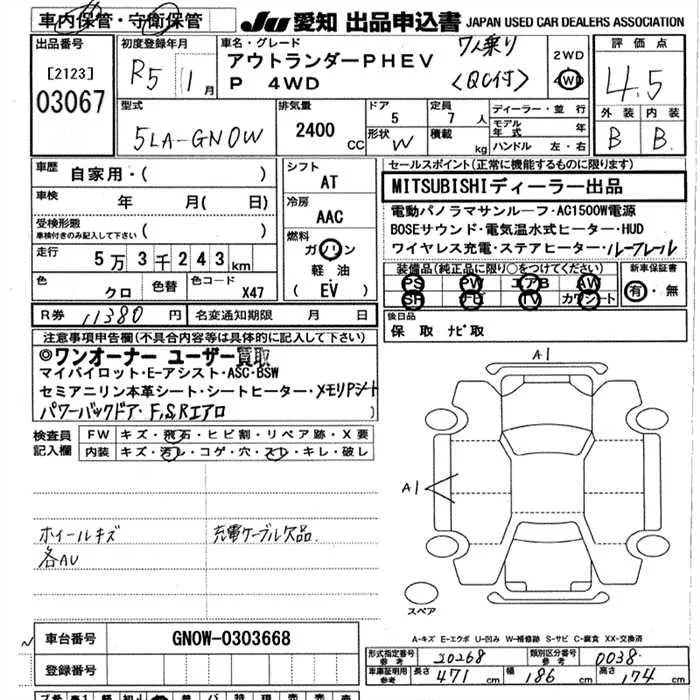 車内保管・守衛保管
JU 愛知 出品申込書 JAPAN USED CAR DEALERS ASSOCIATION
出品番号
[2123]
03067
初度登録年月
R5 1月
車名・グレード
アウトランダーPHEV
P 4WD
7人乗り
〈QC付〉
2WD
4WD
評価点
4.5
外装 内装
B B
型式
5LA-GN0W
排気量
2400 CC
ドア
5
形状
W
定員
7 人
積載
kg
ディーラー・並行
モデル年式 年
ハンドル 左・右
車歴
自家用・( )
車検
年 月( 日)
受検形態
車検付きのみ記入して下さい ( )
走行
5万3千243km
色
クロ
色替
色コード
X47
シフト
AT
冷房
AAC
燃料
ガソリン
軽油
( EV )
セールスポイント(正常に機能するものに限ります)
MITSUBISHIディーラー出品
電動パノラマサンルーフ・AC1500W電源
BOSEサウンド・電気温水式ヒーター・HUD
ワイヤレス充電・ステアヒーター・ルーフレール
装備品(純正品に限り○をつけてください)
PS PW エアB AW
SR ナビ TV カワシート
新車保証書
有・無
R券 11380 円 名変通知期限 月 日
後日品
保 取 ナビ取
注意事項申告欄(不具合内容等は具体的に記入して下さい)
◎ワンオーナー ユーザー買取
マイパイロット・E-アシスト・ASC・BSW
セミアニリン本革シート・シートヒーター・メモリPシート
パワーバックドア・F,S,Rエアロ
検査員記入欄
FW キズ・飛石・ヒビ割・リペア跡・X要
内装 キズ・汚レ・コゲ・穴・スレ・キレ・破レ
ホイールキズ
各AU
充電ケーブル欠品
A1
A1
スペア
A-キズ E-エクボ U-凹み W-補修跡 S-サビ C-腐食 XX-交換済
車台番号 GN0W-0303668
登録番号
形式指定番号 参考 20268
類別区分番号 参考 0038
車庫証明用参考 長さ 471 幅 186 高さ 174